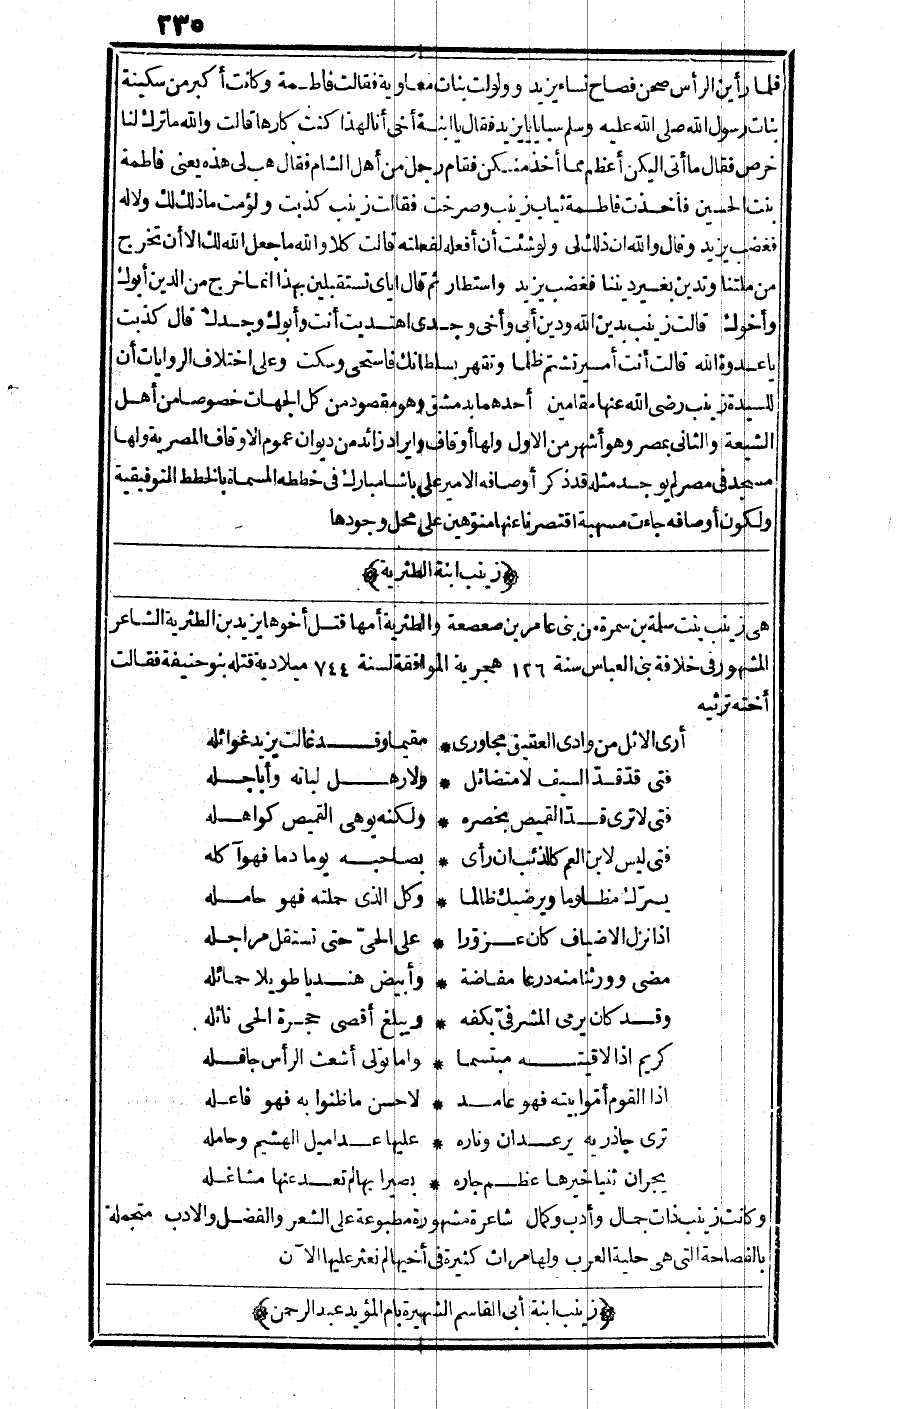 ٢٣٥
فلما رأين الرأس صحن فصاح نساء يزيد وولولت بنات معاوية فقالت فاطمة وكانت أكبر من سكينة
بنات رسول الله صلى الله عليه وسلم سبايا يا يزيد فقال يا ابنة أخى أنا لهذا كنت كارها قالت والله ماترك لنا
خرص فقال ما أتى اليكن أعظم مما أخذ منكن فقام رجل من أهل الشام فقال هب لى هذه يعنى فاطمة
بنت الحسين فأخذت فاطمة ثياب زينب وصرخت فقالت زينب كذبت ولؤمت ماذلك لك ولا له
فغضب يزيد وقال والله ان ذلك لى ولو شئت أن أفعله لفعلته قالت كلا والله ما جعل الله لك الا أن تخرج
من ملتنا وتدين بغير ديننا فغضب يزيد واستطار ثم قال اياى تستقبلين بهذا انما خرج من الدين أبوك
وأخوك قالت زينب بدين الله ودين أبى وأخى وجدى اهتديت أنت وأبوك وجدك قال كذبت
ياعدوة الله قالت أنت أمير تشتم ظلما وتقهر بسلطانك فاستحى وسكت وعلى اختلاف الروايات أن
للسيدة زينب رضى الله عنها مقامين أحدهما بدمشق وهو مقصود من كل الجهات خصوصا من أهل
الشيعة والثانى بمصر وهو أشهر من الاول ولها أوقاف وايراد زائد من ديوان عموم الاوقاف المصرية ولها
مسجد فى مصر لم يوجد مثله قد ذكر أوصافه الامير على باشا مبارك فى خططه المسماة بالخطط التوفيقية
ولكون أوصافه جاءت مسهبة اقتصرنا عنها منوهين على محل وجودها
﴿زينب ابنة الطثرية﴾
هى زينب بنت سلمة بن سمرة من بنى عامر بن صعصعة والطثرية أمها قتل أخوها يزيد بن الطثرية الشاعر
المشهور فى خلافة بنى العباس سنة ١٢٦ هجرية الموافقة لسنة ٧٤٤ ميلادية قتله بنو حنيفة فقالت
أخته ترثيه
أرى الاثل من وادى العقيق مجاورى * مقيما وقد غالت يزيد غوائله
فتى قد قد السيف لا متضائل * ولا رهل لباته وأباجله
فتى لا ترى قد القميص بخصره * ولكنه يوهى القميص كواهله
فتى ليس لابن العم كالذئب ان رأى * بصاحبه يوما دما فهو آكله
يسرك مظلوما ويرضيك ظالما * وكل الذى حملته فهو حامله
اذا نزل الاضياف كان عزورا * على الحى حتى تستقل مراجله
مضى وورثنا منه درعا مفاضة * وأبيض هنديا طويلا حمائله
وقد كان يرمى المشرفى بكفه * ويبلغ أقصى حجرة الحى نائله
كريم اذا لاقيته مبتسما * واما تولى أشعث الرأس جافله
اذا القوم أموا بيته فهو عامد * لاحسن ما ظنوا به فهو فاعله
ترى جاذريه يرعدان وناره * عليها عداميل الهشيم وحامله
يجران ثنيا خيرها عظم جاره * بصيرا بها لم تعد عنها مشاغله
وكانت زينب ذات جمال وأدب وكمال شاعرة مشهورة مطبوعة على الشعر والفضل والادب متجملة
بالفصاحة التى هى حلية العرب ولها مراث كثيرة فى أخيها لم نعثر عليها الآن
﴿زينب ابنة أبى القاسم الشهيرة بام المؤيد عبد الرحمن﴾